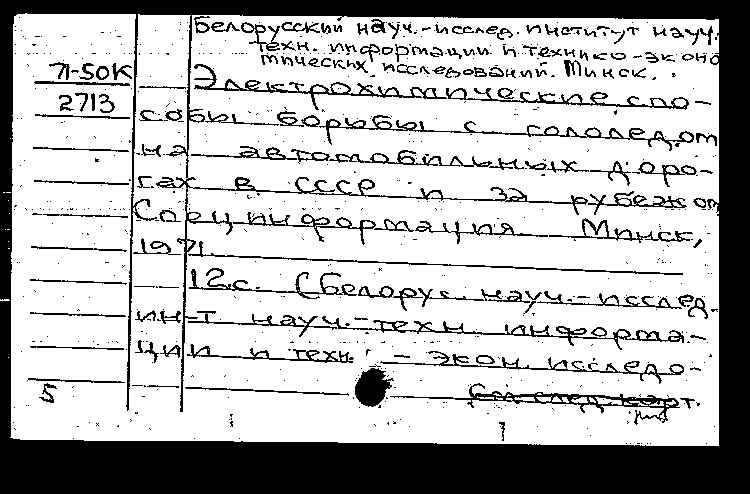 Белорусский науч.-исслед. институт науч.-
техн. информации и технико-эконо
мических исследований. Минск.
71-50К
Электрохимические спо-
2713
собы борьбы с гололедом
на автомобильных доро-
гах в СССР и за рубежом
Специнформация. Минск,
1971.
12с. (Белорус. науч.-исслед.
ин-т науч.-техн. информа-
ции и техн. - экон. исследо-
См. след. карт.
5